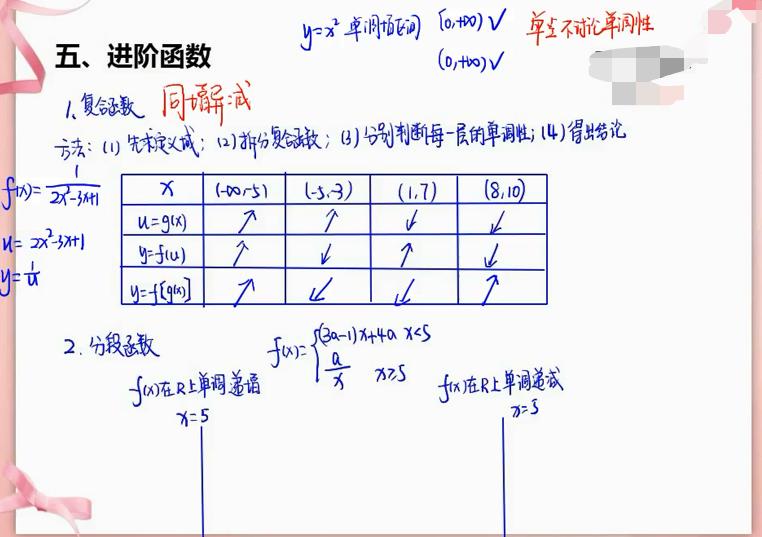 五、进阶函数
y=x² 单调增区间 [0,+∞) ✓ 单点不讨论单调性
(0,+∞) ✓
1、复合函数 同增异减
方法：(1) 先求定义域；(2) 拆分复合函数；(3) 分别判断每一层的单调性；(4) 得出结论
f(x)=1/(2x²-3x+1)
u=2x²-3x+1
y=1/u
x (-∞,-5) (-5,-3) (1,7) (8,10)
u=g(x) ↗ ↗ ↙ ↙
y=f(u) ↗ ↙ ↗ ↙
y=f[g(x)] ↗ ↙ ↙ ↗
2、分段函数
f(x)={(3a-1)x+4a x<5
a/x x≥5
f(x)在R上单调递增
x=5
f(x)在R上单调递减
x=5